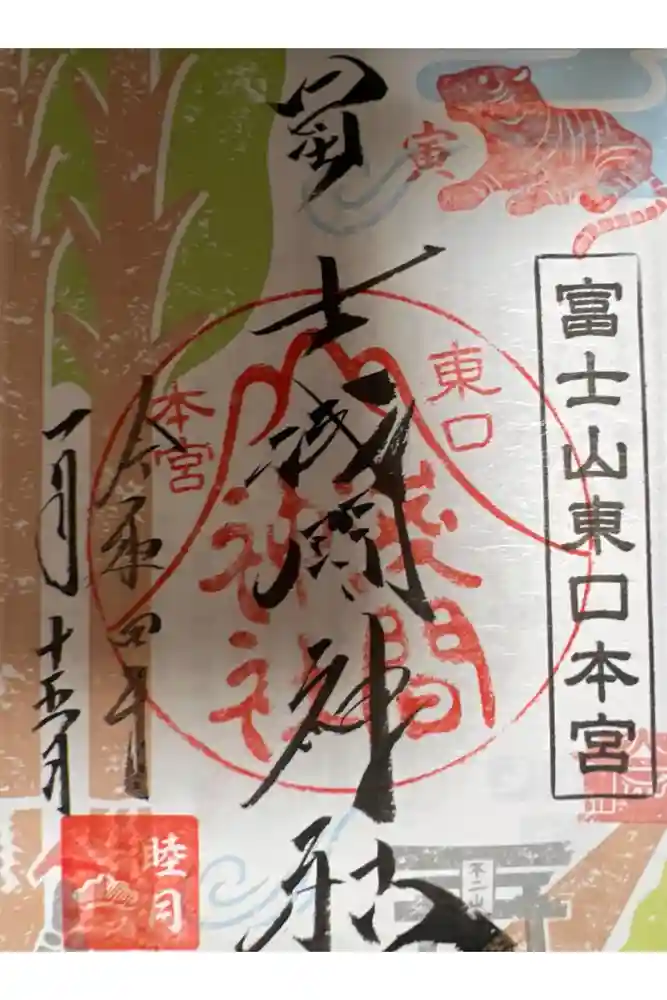 寅
富士山東口本宮
冨士浅間神社
東口
本宮
淺間
神社
令和四年
一月十五日
睦月
不二山